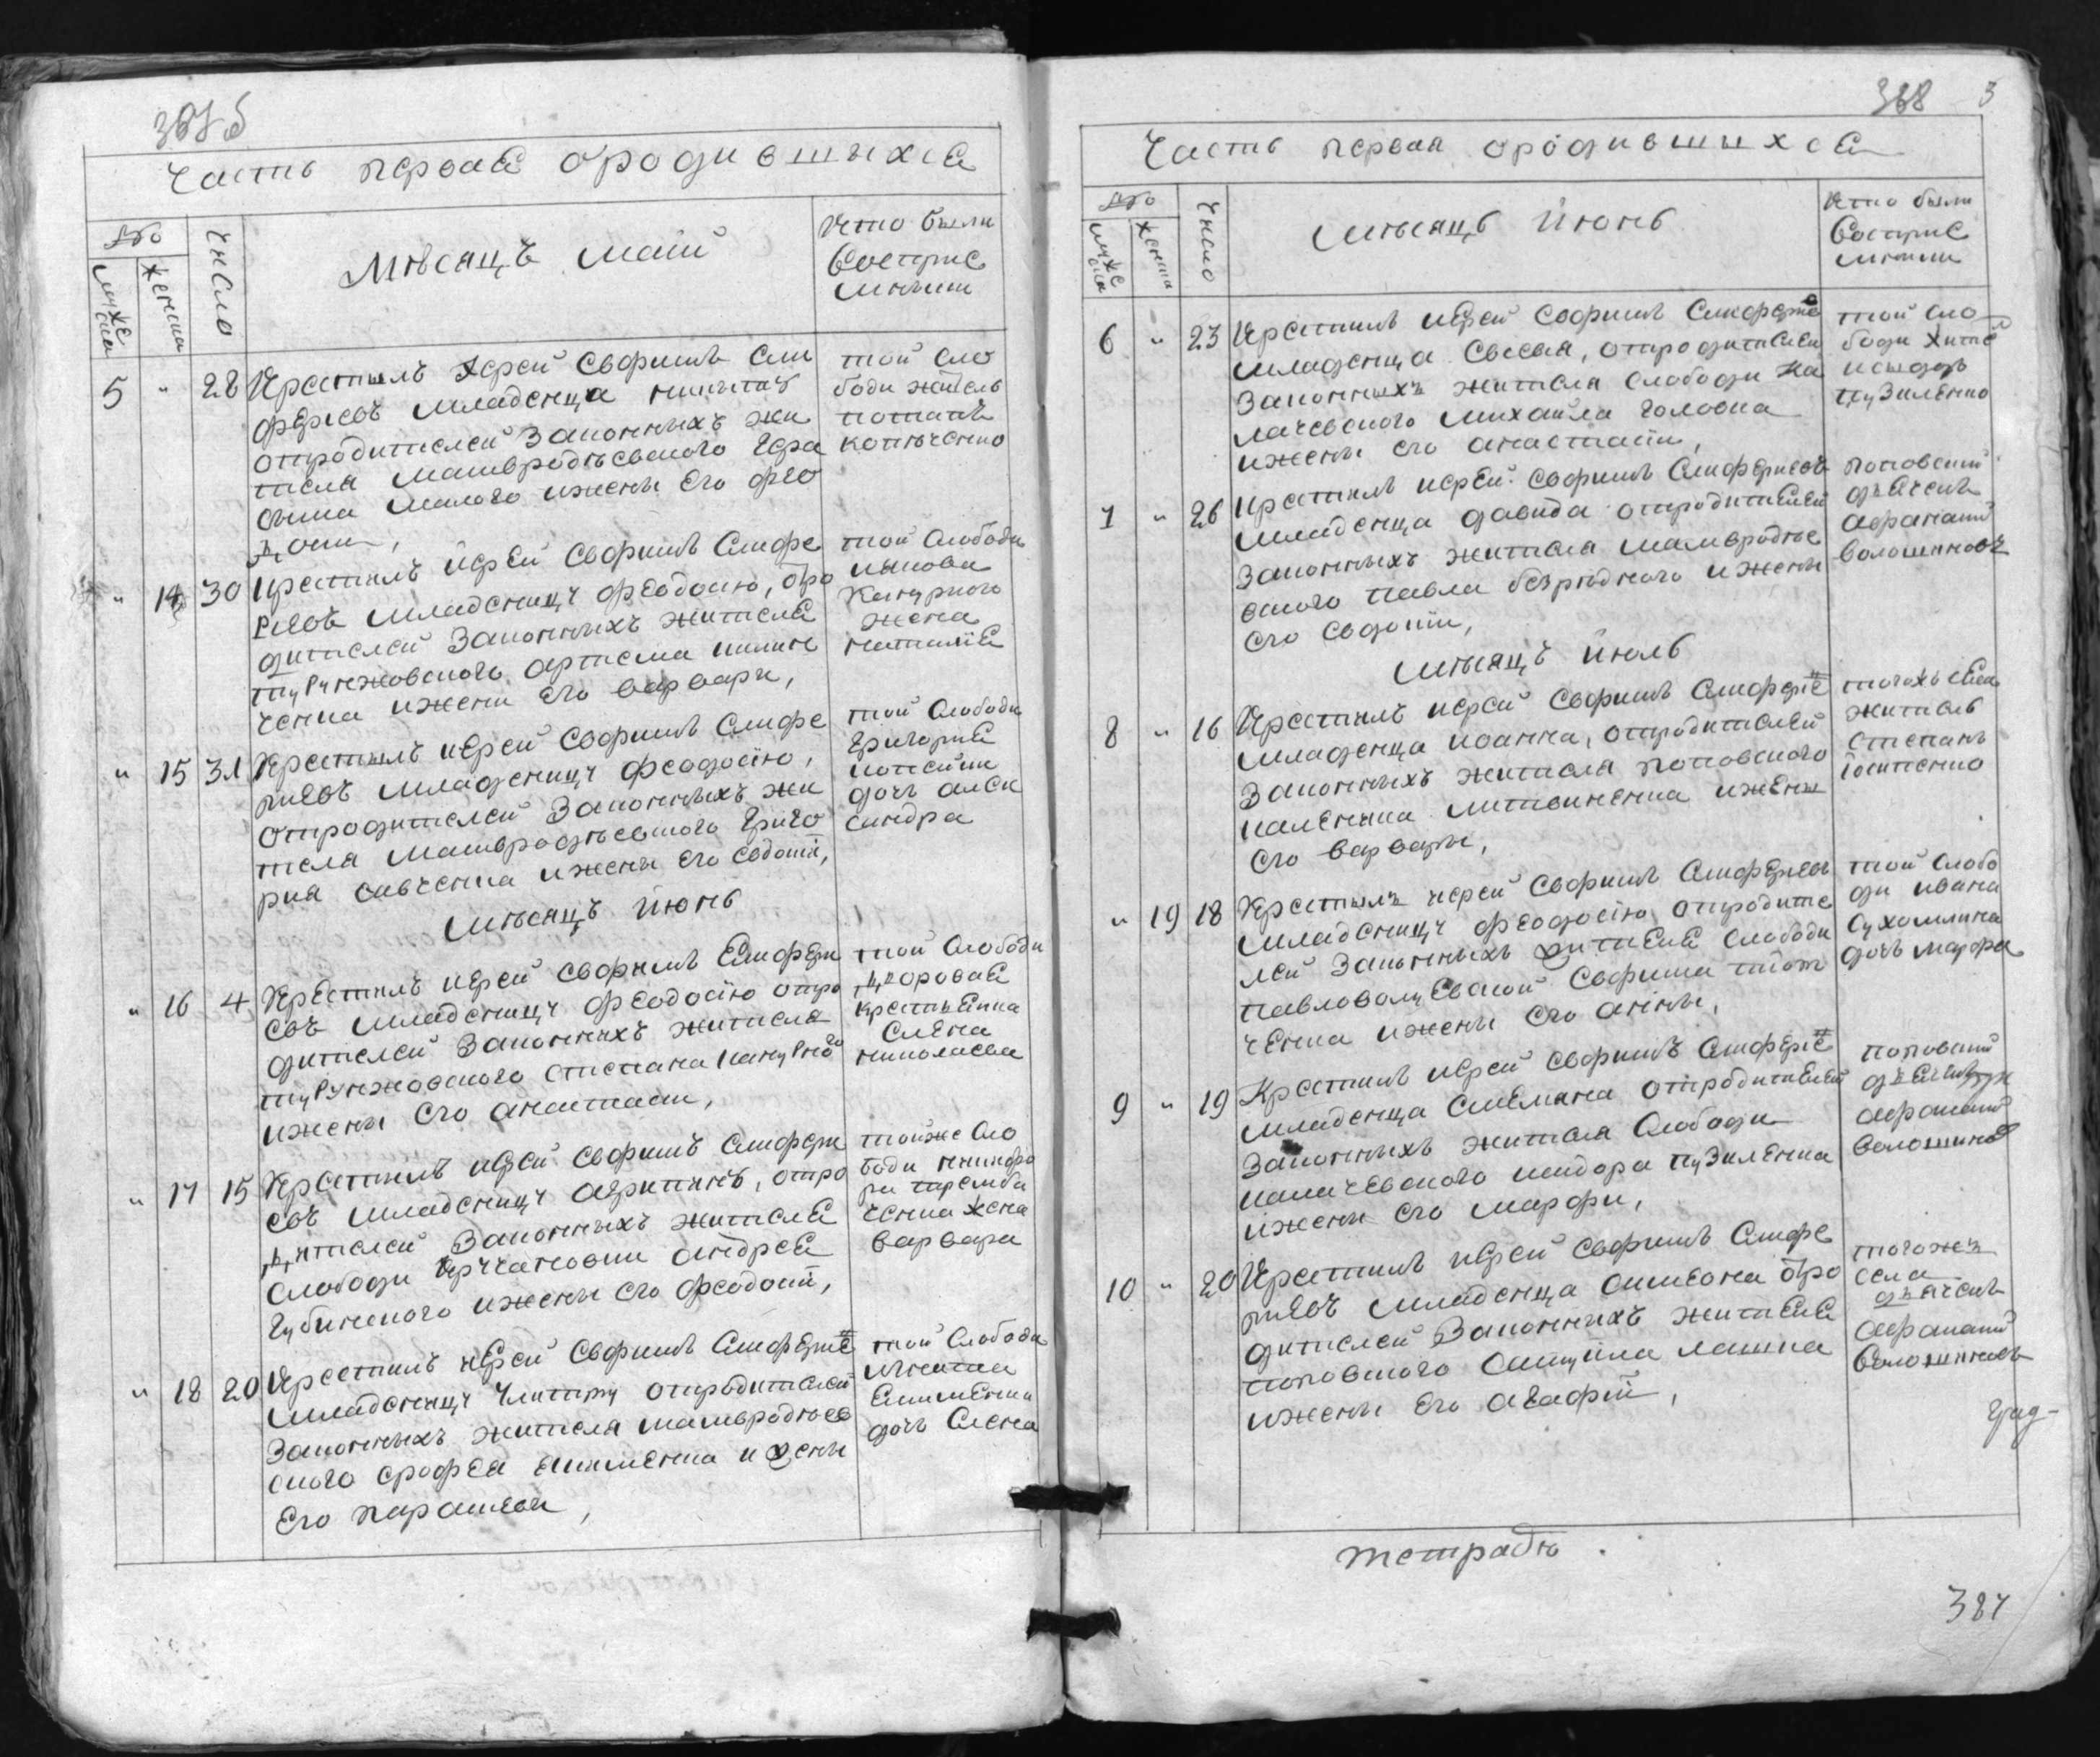 387 б
Часть первая ородившыхся
Мѣсяцъ май
число
женска
Кто были
Восприе
мники
5 " 28 Крестилъ иерей Софрин Али
ферневъ младенца никиту
отродителей законныхъ жи
теля мамвродѣевского гера
сима малого ижени его фео
доси,
той сло
боди житель
потапъ
копѣченко
" 14 30 Крестилъ иерей Софрин Алифе
риевъ младеницу феодосию, отро
дителей законныхъ жителя
артема
ченка ижени его варвари,
той слободи
якова
канурного
жена
наталия
" 15 31 Крестилъ иерей Софрин Алифе
риевъ младеницу феодосию,
отродителей законныхъ жи
теля мамвродѣевского григо
рия савченка ижени его евдокии,
той слободи
григория
дочь алек
сандра
мѣсяцъ июнь
" 16 4 Крестилъ иерей Софрин Алифери
евъ младеницу феодосию отро
дителей законныхъ жителя
степана канурного
ижени его анастасии,
той слободи
дворовая
елена
николаева
" 17 15 Крестилъ иерей Софрин Алифери
евъ младеницу агрипину, отро
дителей законныхъ жителя
слободи андрея
губинского ижени его феодосии,
тойже сло
боди никифо
ра тремба
ченка жена
варвара
" 18 20 Крестилъ иерей Софрин Алиферие
младеницу улитту отродителей
законныхъ жителя мамвродѣев
ского ерофея ижени
его параскеви,
той слободи
игната
дочь елена
388 3
Часть первая ородившыхся
число
женска
мѣсяцъ июнь
Кто были
Восприе
мники
6 " 23 Крестилъ иерей Софрин Алиферие
младенца евсевия, отродителей
законныхъ жителя слободи ка
лачевского михаила головка
ижени его анастасии,
той сло
боди жите
исидоръ
пузиленко
7 " 26 Крестилъ иерей Софрин Алифериевъ
младенца давида отродителей
законныхъ жителя мамвродѣе
вского павла безрѣдного ижени
его евдокии,
поповский
дьячокъ
афанасий
волошиновъ
мѣсяцъ июль
8 " 16 Крестилъ иерей Софрин Алиферие
младенца иоанна, отродителей
законныхъ жителя поповского
литвиненка ижени
его варвари,
тогожъ села
житель
степанъ
" 19 18 Крестилъ иерей Софрин Алифериевъ
младеницу феодосию отродите
лей законныхъ жителя слободи
павловолуцевской
ченка ижени его анни,
той слобо
ди ивана
сухомлина
дочь марфа
9 " 19 Крестилъ иерей Софрин Алиферие
младенца отродителей
законныхъ жителя слободи
калачевского исидора пузиленка
ижени его марфи,
поповский
дьячокъ
афанасий
волошинов
10 " 20 Крестилъ иерей Софрин Алифе
риевъ младенца симеона отро
дителей законныхъ жителя
поповского самуила лашка
ижени его агафии,
тогожъ
села
дьячокъ
афанасий
волошиновъ
тетрадь .
387